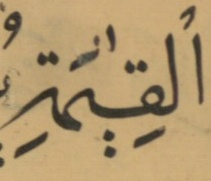 اَلْقِيٰمَةِ